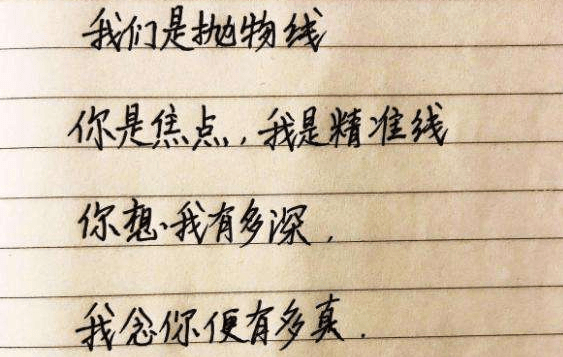 我们是抛物线
你是焦点，我是精准线
你想我有多深，
我念你便有多真．